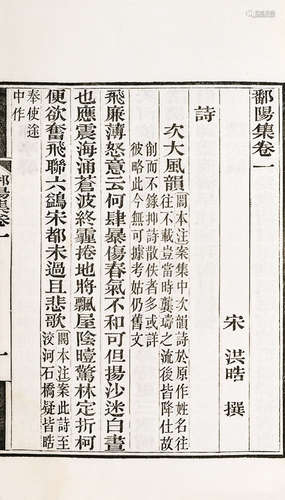 鄱陽集卷一
宋 洪皓 撰
詩
次大風韻
闕本注案集中次韻詩於原作姓名往
往不載豈當時龔璹之流後皆降仕故
削而不錄抑詩散佚者多或詳
彼略此今無可據考姑仍舊文
飛廉薄怒意云何肆暴傷春氣不和可但揚沙迷白晝
也應震海涌蒼波終霾捲地將飄屋陰曀驚林定折柯
便欲奮飛聯六鷁宋都未過且悲歌
闕本注案此詩至
汶河石橋疑皆皓
奉使途
中作
鄱陽集卷一